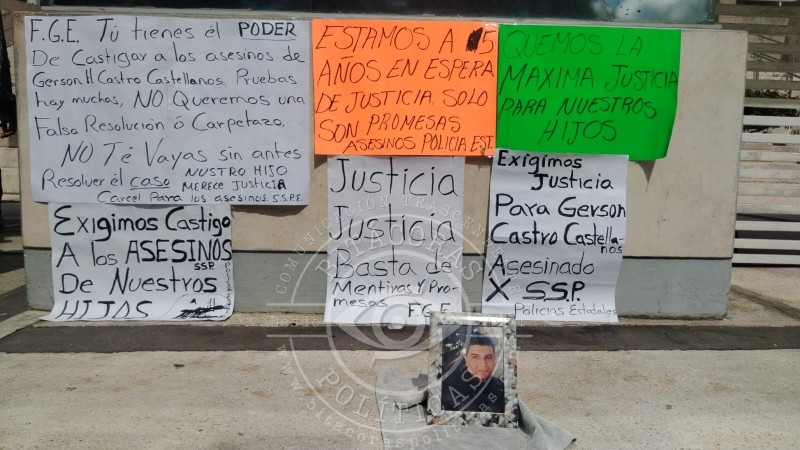 F.G.E. TÚ tienes él PODER
De Castigar a los asesinos de
Gerson H Castro Castellanos, Pruebas
hay muchas, NO Queremos una
Falsa Resolución ó Carpetazo.
NO Té Vayas sin antes
Resolver él caso NUSTRO HIJO
MERECE JUSTICIA
Carcel Para los asesinos. S.S.P.E.
ESTAMOS A 5
AÑOS EN ESPERA
DE JUSTICIA. SOLO
SON PROMESAS
ASESINOS POLICIA EST.
QUEMOS LA
MAXIMA JUSTICIA
PARA NUESTROS
HIJOS
Exigimos Castigo
A los ASESINOS
SSP
De Nuestros
HIJOS
Justicia
Justicia
Basta de
Mentiras Y Pro-
mesas F.G.E
Exigimos
Justicia
Para Gerson
Castro Castella-
nos
Asesinado
X S.S.P.
Policias Estatales
COMUNICACIÓN TRASCENDENTE
BITÁCORAS
POLÍTICAS